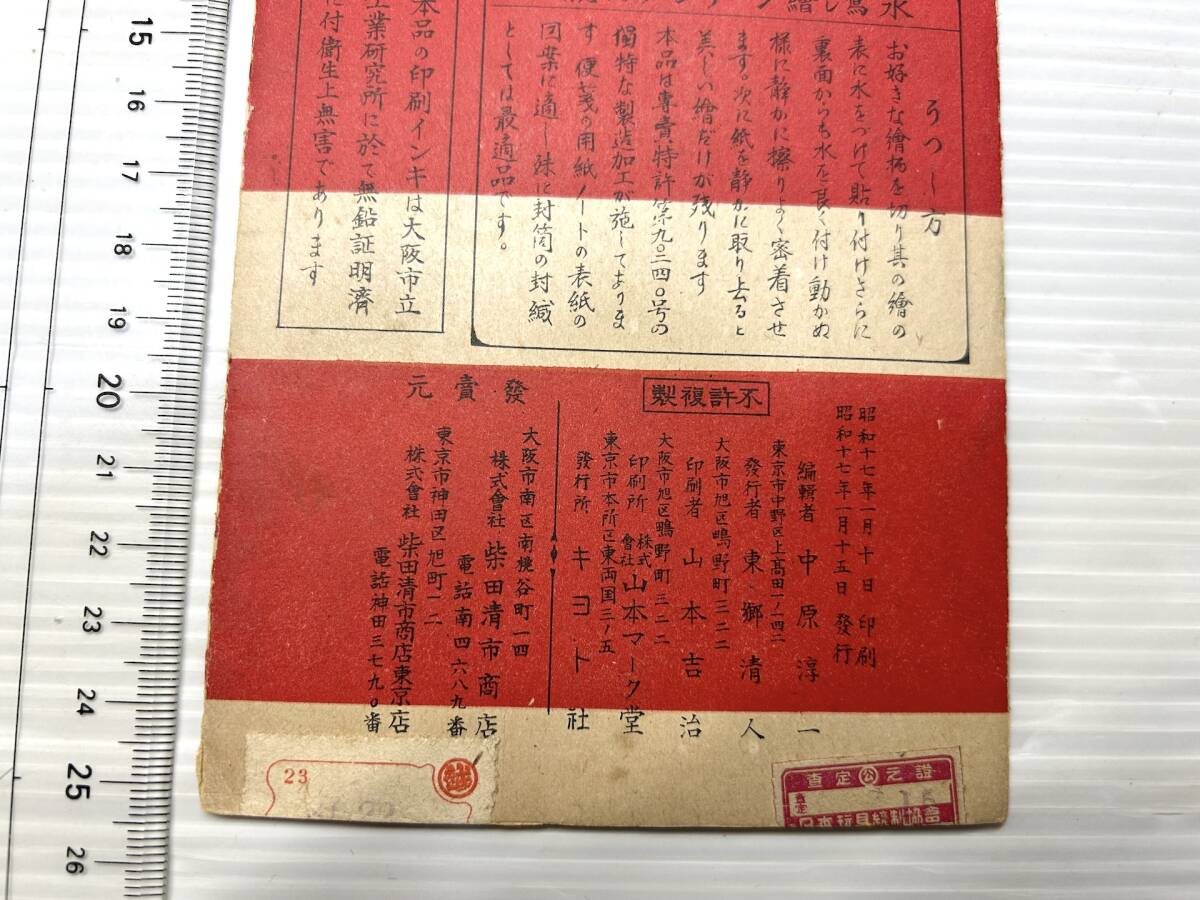 うつし方
お好きな繪柄を切り其の繪の
表に水をつけて貼り付けさらに
裏面からも水を良く付け動かぬ
様に静かに擦りよく密着させ
ます。次に紙を静かに取り去ると
美しい繪だけが残ります
本品は専賣特許第九〇三四〇号の
獨特な製造加工が施してありま
す 便箋の用紙ノートの表紙の
回葉に適し 殊に封筒の封緘
としては最適品です。
本品の印刷インキは大阪市立
工業研究所に於て無鉛証明濟
に付衛生上無害であります
昭和十七年一月十日 印刷
昭和十七年一月十五日 發行
不許複製
編輯者 中原淳一
東京市中野区上高田一ノ四二
發行者 東郷清人
大阪市旭区鴫野町三二二
印刷者 山本吉治
大阪市旭区鴫野町三二二
印刷所 株式會社 山本マーク堂
東京市本所区東両国三ノ五
發行所 キヨト社
發賣元
大阪市南区南桃谷町一四
株式會社 柴田清市商店
電話南四六八九番
東京市神田区旭町一二
株式會社 柴田清市商店東京店
電話神田三七九〇番
23
越
査定 公 元證
15
16
17
18
19
20
21
22
23
24
25
26